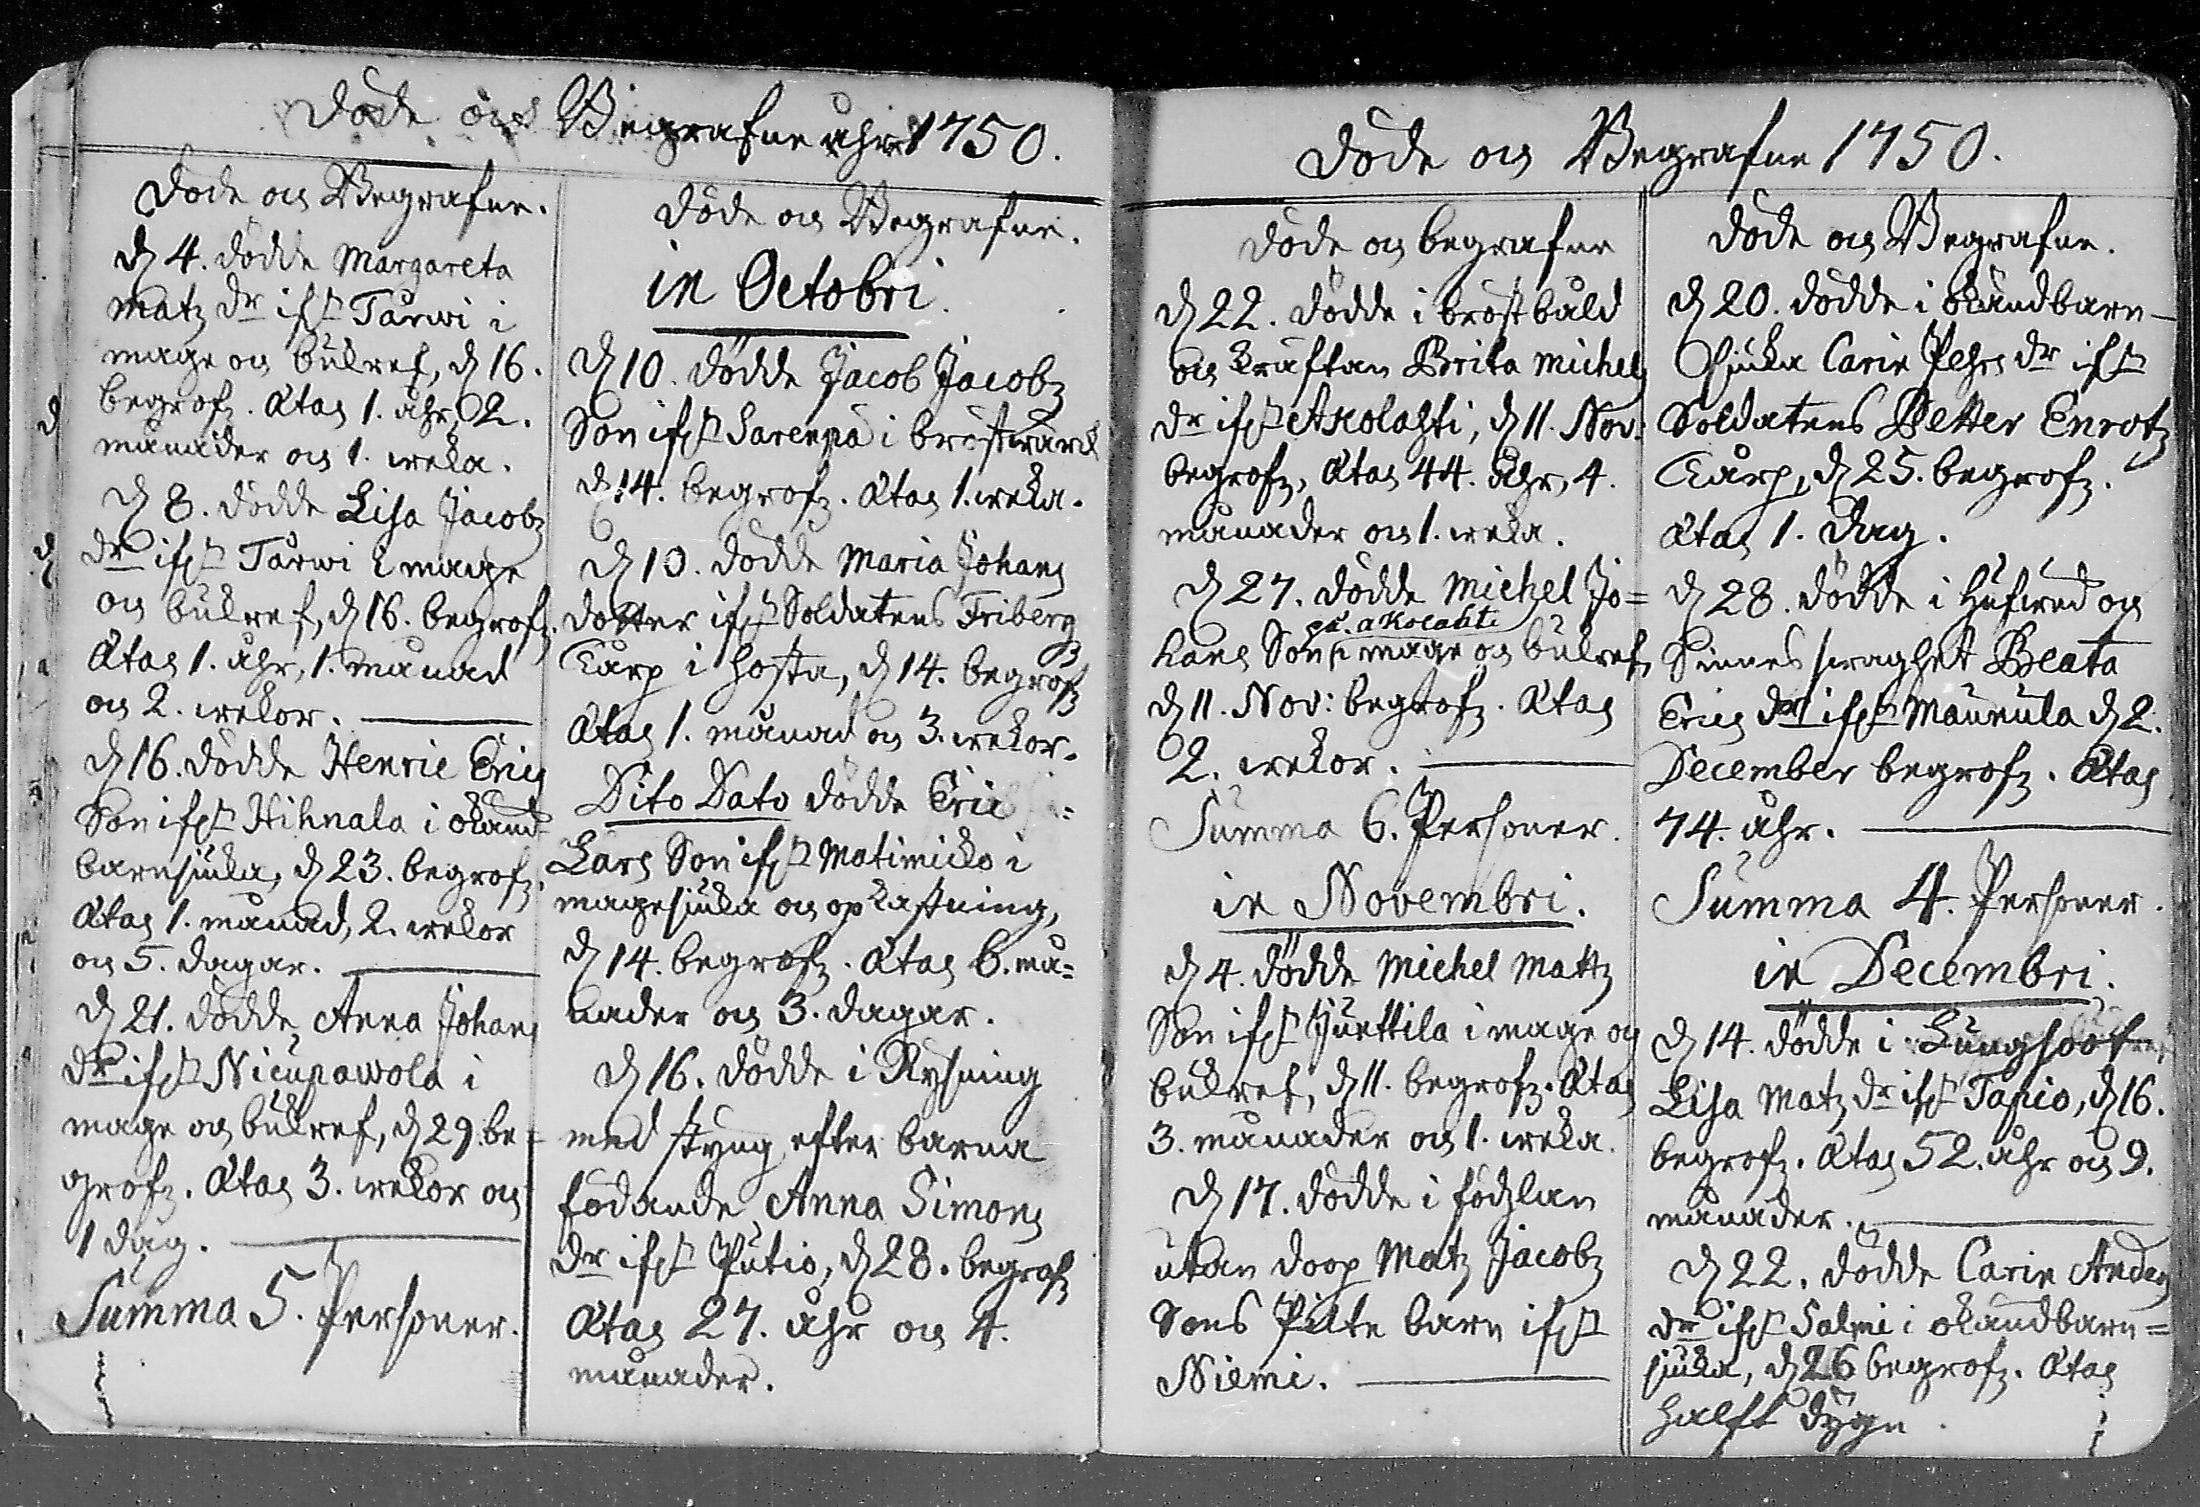 Döde och Begrafne åhr 1750.
Döde och Begrafne.
d 4. dödde Margareta
Matz dr ifrå Tårwi i
mage och bukref, d 16.
begrofz. Ætas 1. åhr, 2.
månader och 1. weka.
d 8. dödde Lisa Jacobz
dr ifrå Tårwi i mage
och bukref, d 16. begrofz.
Ætas 1. åhr, 1. månad
och 2. wekor.
d 16. dödde Henric Erics
Son ifrå Hihnala i okänd
barnsiuka, d 23. begrofz.
Ætas 1. månad, 2. wekor
och 5. dagar.
d 21. dödde Anna Johans
dr ifrå Nicupawola i
mage och bukref, d 29. be=
grofz. Ætas 3. wekor och
1 dag.
Summa 5. Personer.
Döde och Begrafne.
in Octobri.
d 10. dödde Jacob Jacobz
Son ifrå Sarenpä i bröstwärck
d 14. begrofz. Ætas 1. weka.
d 10. dödde Maria Johans
dotter ifrå Soldatens Friberg
Tårp i hosta, d 14. begrofz
Ætas 1. månad och 3. wekor.
Dito Dato dödde Eric
Lars Son ifrå Matimicko i
magesiuka och opkastning,
d 14. begrofz. Ætas 6. må=
nader och 3. dagar.
d 16. dödde i Rysning
med styng efter barna
födande Anna Simons
dr ifrå Putio, d 28. begrofz
Ætas 27. åhr och 4.
månader.
Döde och Begrafne 1750.
Döde och begrafne
d 22. dödde i bröstbåld
och kräftan Brita Michels
dr ifrå Akolahti, d 11. Nov:
begrofz, Ætas 44. åhr, 4.
månader och 1. weka.
d 27. dödde Michel Jo=
på. akolahti
hans Son i mage och bukref,
d 11. Nov: begrofz. Ætas
2. wekor.
Summa 6. Personer.
in Novembri.
d 4. dödde Michel Mattz
Son ifrå Juettila i mage och
bukref, d 11. begrofz. Ætas
3. månader och 1. weka.
d 17. dödde i födzlan
utan doop Matz Jacobz
Sons Pilte barn ifrå
Niemi.
Döde och Begrafne.
d 20. dödde i okändbarn-
siuka Carin Pehrs dr ifrå
Soldatens Petter Enrotz
Tårp, d 25. begrofz.
Ætas 1. dag.
d 28. dödde i Hufwud och
Sinnes swaghet Beata
Erics dr ifrå Maunula d 2.
December begrofz. Ætas
74. åhr.
Summa 4. Personer.
in Decembri.
d 14. dödde i Lungsoot
Lisa Matz dr ifrå Tapio, d 16.
begrofz. Ætas 52. åhr och 9.
månader.
d 22. dödde Carin Anders
dr ifrå Salmi i okändbarn=
siuka, d 26 begrofz. Ætas
halft dygn.